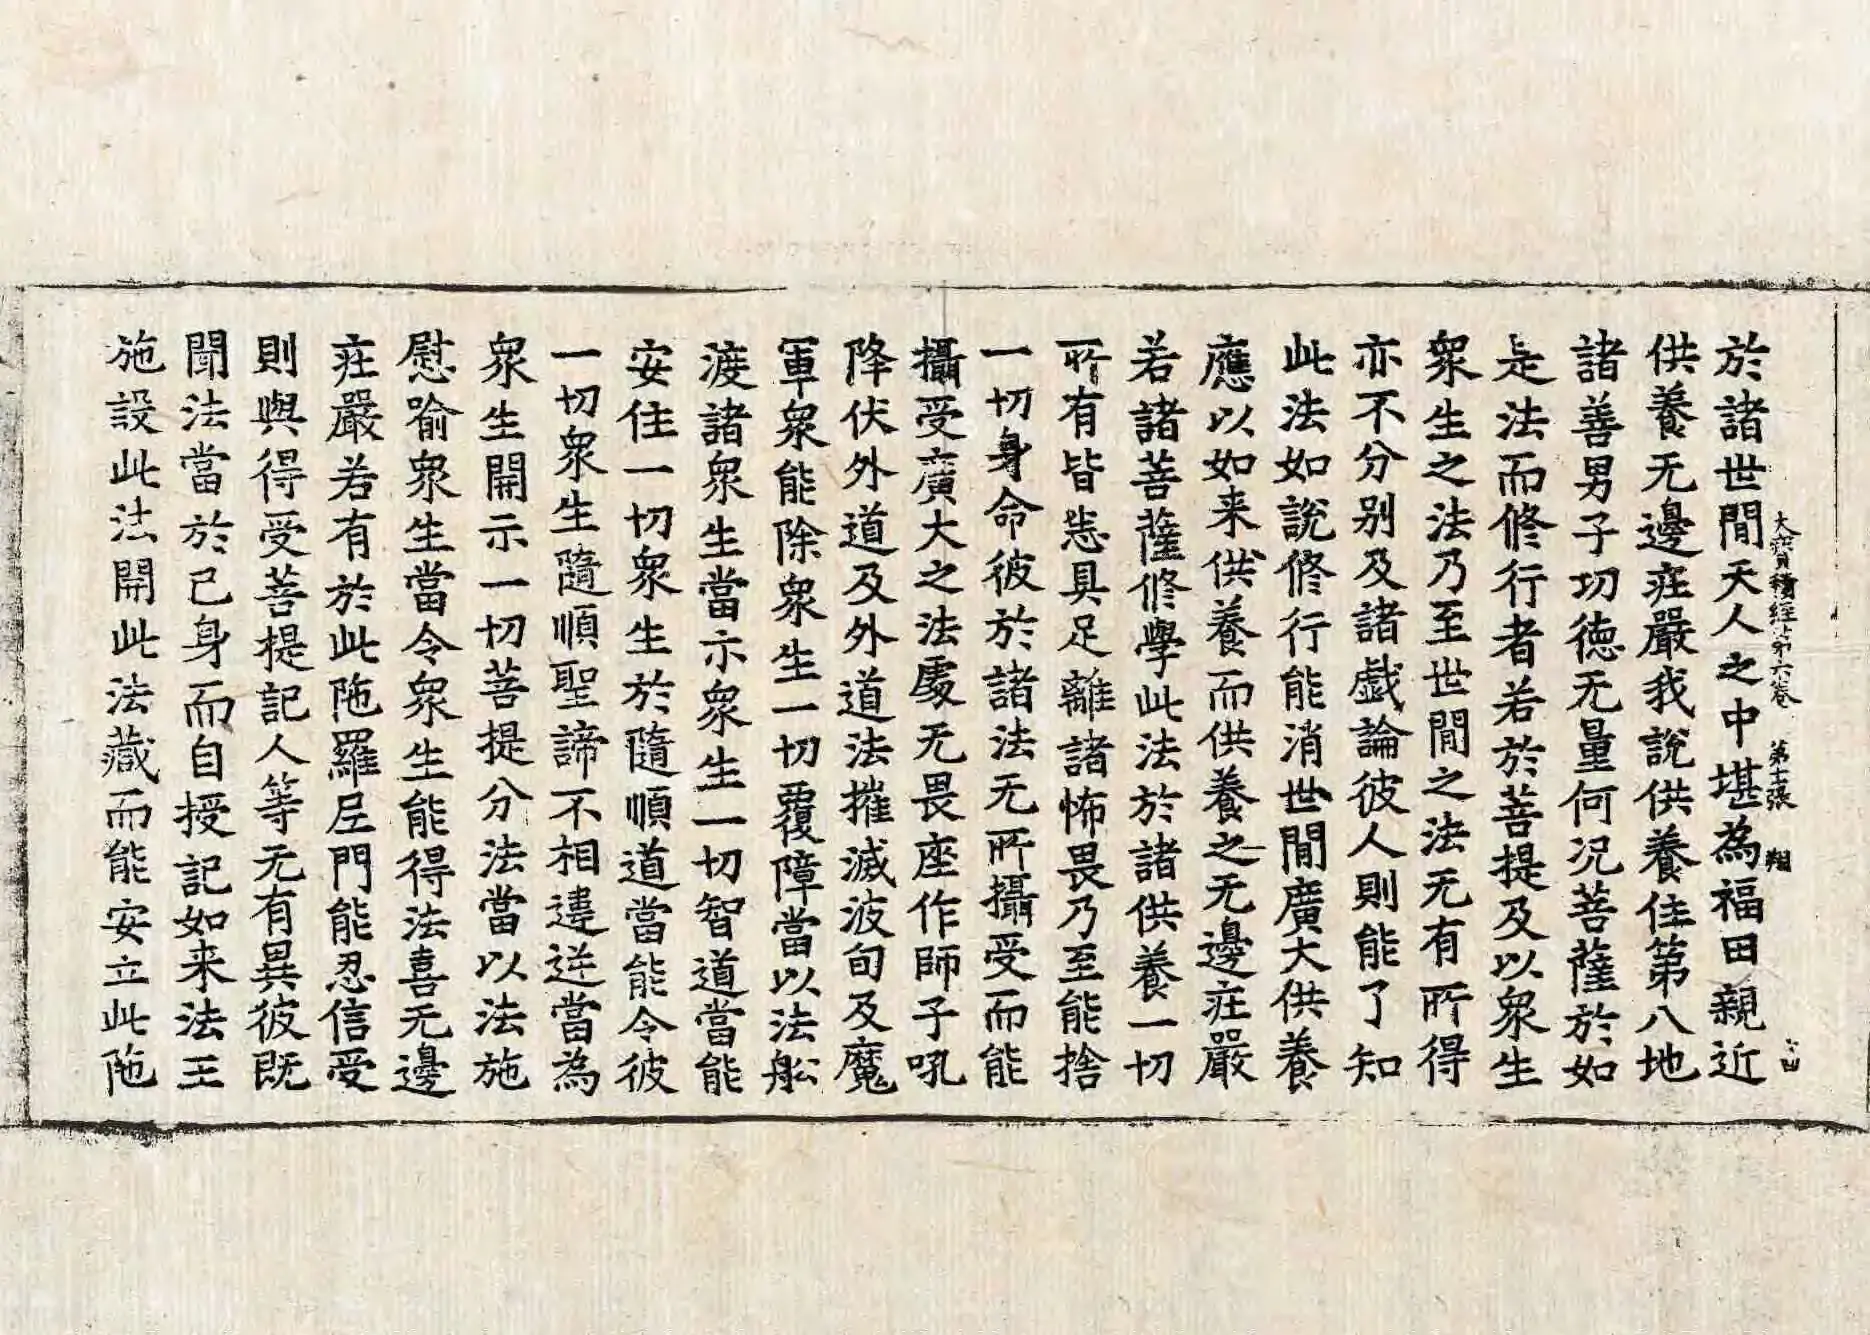 大寶積經第六卷 第十二張 翔
於諸世間天人之中堪為福田親近
供養无邊㽵嚴我說供養住第八地
諸善男子功德无量何况菩薩於如
是法而修行者若於菩提及以衆生
衆生之法乃至世間之法无有所得
亦不分别及諸戲論彼人則能了知
此法如說修行能消世間廣大供養
應以如来供養而供養之无邊㽵嚴
若諸菩薩修學此法於諸供養一切
所有皆悉具足離諸怖畏乃至能捨
一切身命彼於諸法无所攝受而能
攝受廣大之法處无畏座作師子吼
降伏外道及外道法摧滅波旬及魔
軍衆能除衆生一切覆障當以法舩
渡諸衆生當示衆生一切智道當能
安住一切衆生於隨順道當能令彼
一切衆生隨順聖諦不相違逆當為
衆生開示一切菩提分法當以法施
慰喻衆生當令衆生能得法喜无邊
㽵嚴若有於此陁羅尼門能忍信受
則與得受菩提記人等无有異彼既
聞法當於己身而自授記如来法王
施設此法開此法藏而能安立此陁